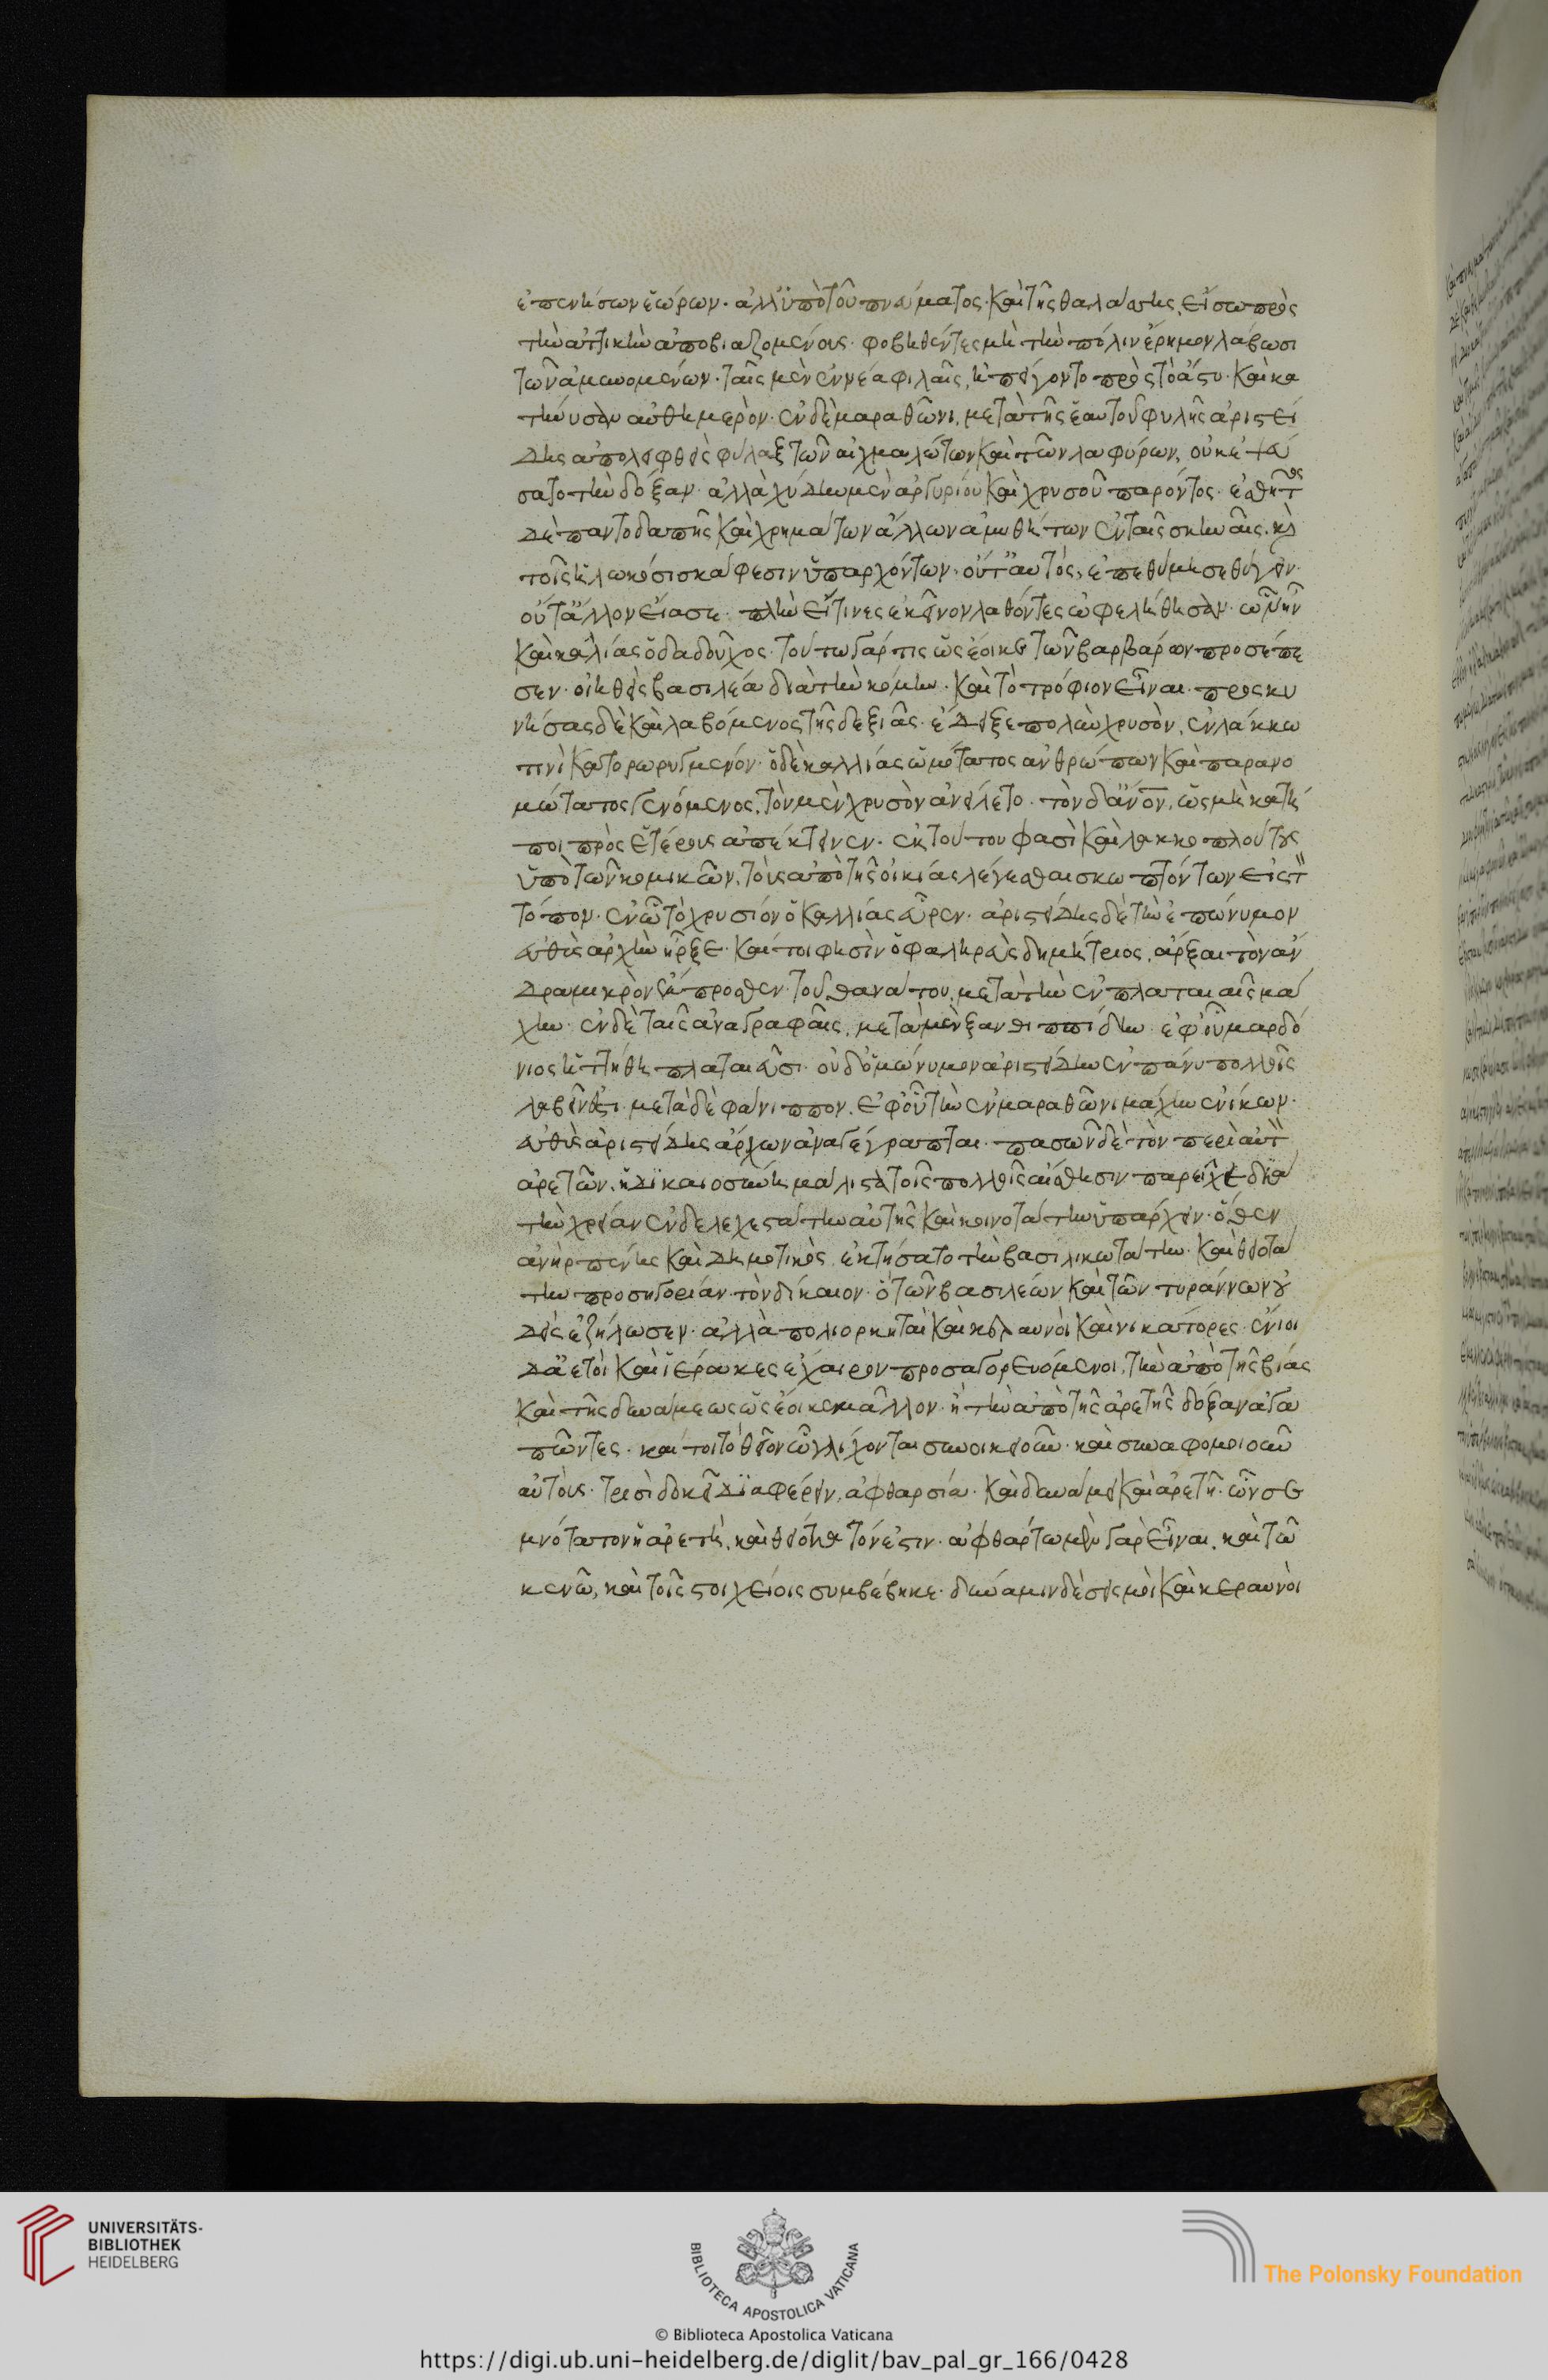 ἐπι νήσων ἑώρων· ἀλλ' ὑπὸ τοῦ πνεύματος· καὶ τῆς θαλάττης, εἴσω πρὸς
τὴν ἀττικὴν ἀποβιαζομένους· φοβηθέντες μὴ τὴν πόλιν ἔρημον λάβωσι
τῶν ἀμυνομένων· ταῖς μὲν ἐννέα φιλαῖς, ἠπείγοντο πρὸς τὸ ἄστυ· καὶ κα
τήνυσαν αὐθημερόν· ἐν δὲ μαραθῶνι, μετὰ τῆς ἑαυτοῦ φυλῆς ἀριστεί
δης ἀπολειφθεὶς φύλαξ τῶν αἰχμαλώτων καὶ τῶν λαφύρων, οὐκ ἐψεύ
σατο τὴν δόξαν· ἀλλὰ χύδην μὲν ἀργυρίου καὶ χρυσοῦ παρόντος· ἐσθῆτος
δὲ παντοδαπῆς καὶ χρημάτων ἄλλων ἀμυθήτων ἐν ταῖς σκηναῖς, καὶ
τοῖς ἡλωκόσι σκάφεσιν ὑπαρχόντων· οὔτ' αὐτὸς, ἐπεθύμησε θίγειν·
οὔτ' ἄλλον εἴασε· πλὴν εἴ τινες ἐκεῖνον λαθόντες ὠφελήθησαν· ὧν ἦν
καὶ καλίας ὁ δαδοῦχος· τούτω γάρ τις ὡς ἔοικε τῶν βαρβάρων προσέπε
σεν· οἰηθεὶς βασιλέα διὰ τὴν κόμην· καὶ τὸ τρόφιον εἶναι· προσκυ
νήσας δὲ καὶ λαβόμενος τῆς δεξιᾶς· ἔδειξε πολὺν χρυσὸν, ἐν λάκκω
τινὶ κατορωρυγμένον· ὁ δὲ καλλίας ὠμότατος ἀνθρώπων καὶ παρανο
μώτατος γενόμενος, τὸν μὲν χρυσὸν ἀνείλετο· τὸν δ' ἄνον, ὡς μὴ κατεί
ποι πρὸς ἑτέρους ἀπέκτεινεν· ἐκ τούτου φασὶ καὶ λακκοπλούτους
ὑπὸ τῶν κομικῶν, τοὺς ἀπὸ τῆς οἰκίας λέγεσθαι σκωπτόντων εἰς τὸν
τόπον· ἐν ὧ τὸ χρυσίον ὁ καλλίας εὗρεν· ἀριστείδης δὲ τὴν ἐπώνυμον
εὐθὺς ἀρχὴν ἦρξε· καί τοι φησὶν ὁ φαληρεὺς δημήτριος, ἄρξαι τὸν ἄν
δρα μικρὸν ἔμπροσθεν τοῦ θανάτου, μετὰ τὴν ἐν πλαταιαῖς μά
χην· ἐν δὲ ταῖς ἀναγραφαῖς, μετὰ μὲν ξανθιππίδην· ἐφ' οὗ μαρδό
νιος ἡττήθη πλαταιᾶσι· οὐδ' ὁμώνυμον ἀριστείδην ἐν πάνυ πολλοῖς
λαβεῖν ἔστι· μετὰ δὲ φάνιππον, ἐφ' οὗ τὴν ἐν μαραθῶνι μάχην ἐνίκων·
εὐθὺς ἀριστείδης ἄρχων ἀναγέγραπται· πασῶν δὲ τὸν περὶ αὐτὸν
ἀρετῶν, ἡ δικαιοσύνη μάλιστα τοῖς πολλοῖς αἴσθησιν παρεῖχε διὰ
τὴν χρείαν ἐνδελεχεστάτην αὐτῆς καὶ κοινοτάτην ὑπάρχειν· ὅθεν
ἀνὴρ πένης καὶ δημοτικὸς ἐκτήσατο τὴν βασιλικωτάτην· καὶ θειοτά
την προσηγορίαν τὸν δίκαιον· ὃ τῶν βασιλέων καὶ τῶν τυράννων οὐ
δεὶς ἐζήλωσεν· ἀλλὰ πολιορκηταὶ καὶ κεραυνοὶ καὶ νικάτορες· ἔνιοι
δ' ἀετοὶ καὶ ἱέρακες ἔχαιρον προσαγορευόμενοι, τὴν ἀπὸ τῆς βίας
καὶ τῆς δυνάμεως ὡς ἔοικε μᾶλλον· ἢ τὴν ἀπὸ τῆς ἀρετῆς δόξαν ἀγα
πῶντες· καί τοι τὸ θεῖον ὧ γλίχονται συνοικειοῦν· καὶ συναφομοιοῦν
αὑτοὺς· τρισὶ δοκεῖ διαφέρειν, ἀφθαρσία· καὶ δυνάμει καὶ ἀρετῆ· ὧν σε
μνότατον ἡ ἀρετὴ, καὶ θειότατόν ἐστιν· ἀφθάρτω μὲν γὰρ εἶναι, καὶ τῶ
κενῶ, καὶ τοῖς στοιχείοις συμβέβηκε· δύναμιν δὲ σεισμοὶ καὶ κεραυνοὶ
UNIVERSITÄTS-
BIBLIOTHEK
HEIDELBERG
BIBLIOTECA APOSTOLICA VATICANA
The Polonsky Foundation
© Biblioteca Apostolica Vaticana
https://digi.ub.uni-heidelberg.de/diglit/bav_pal_gr_166/0428